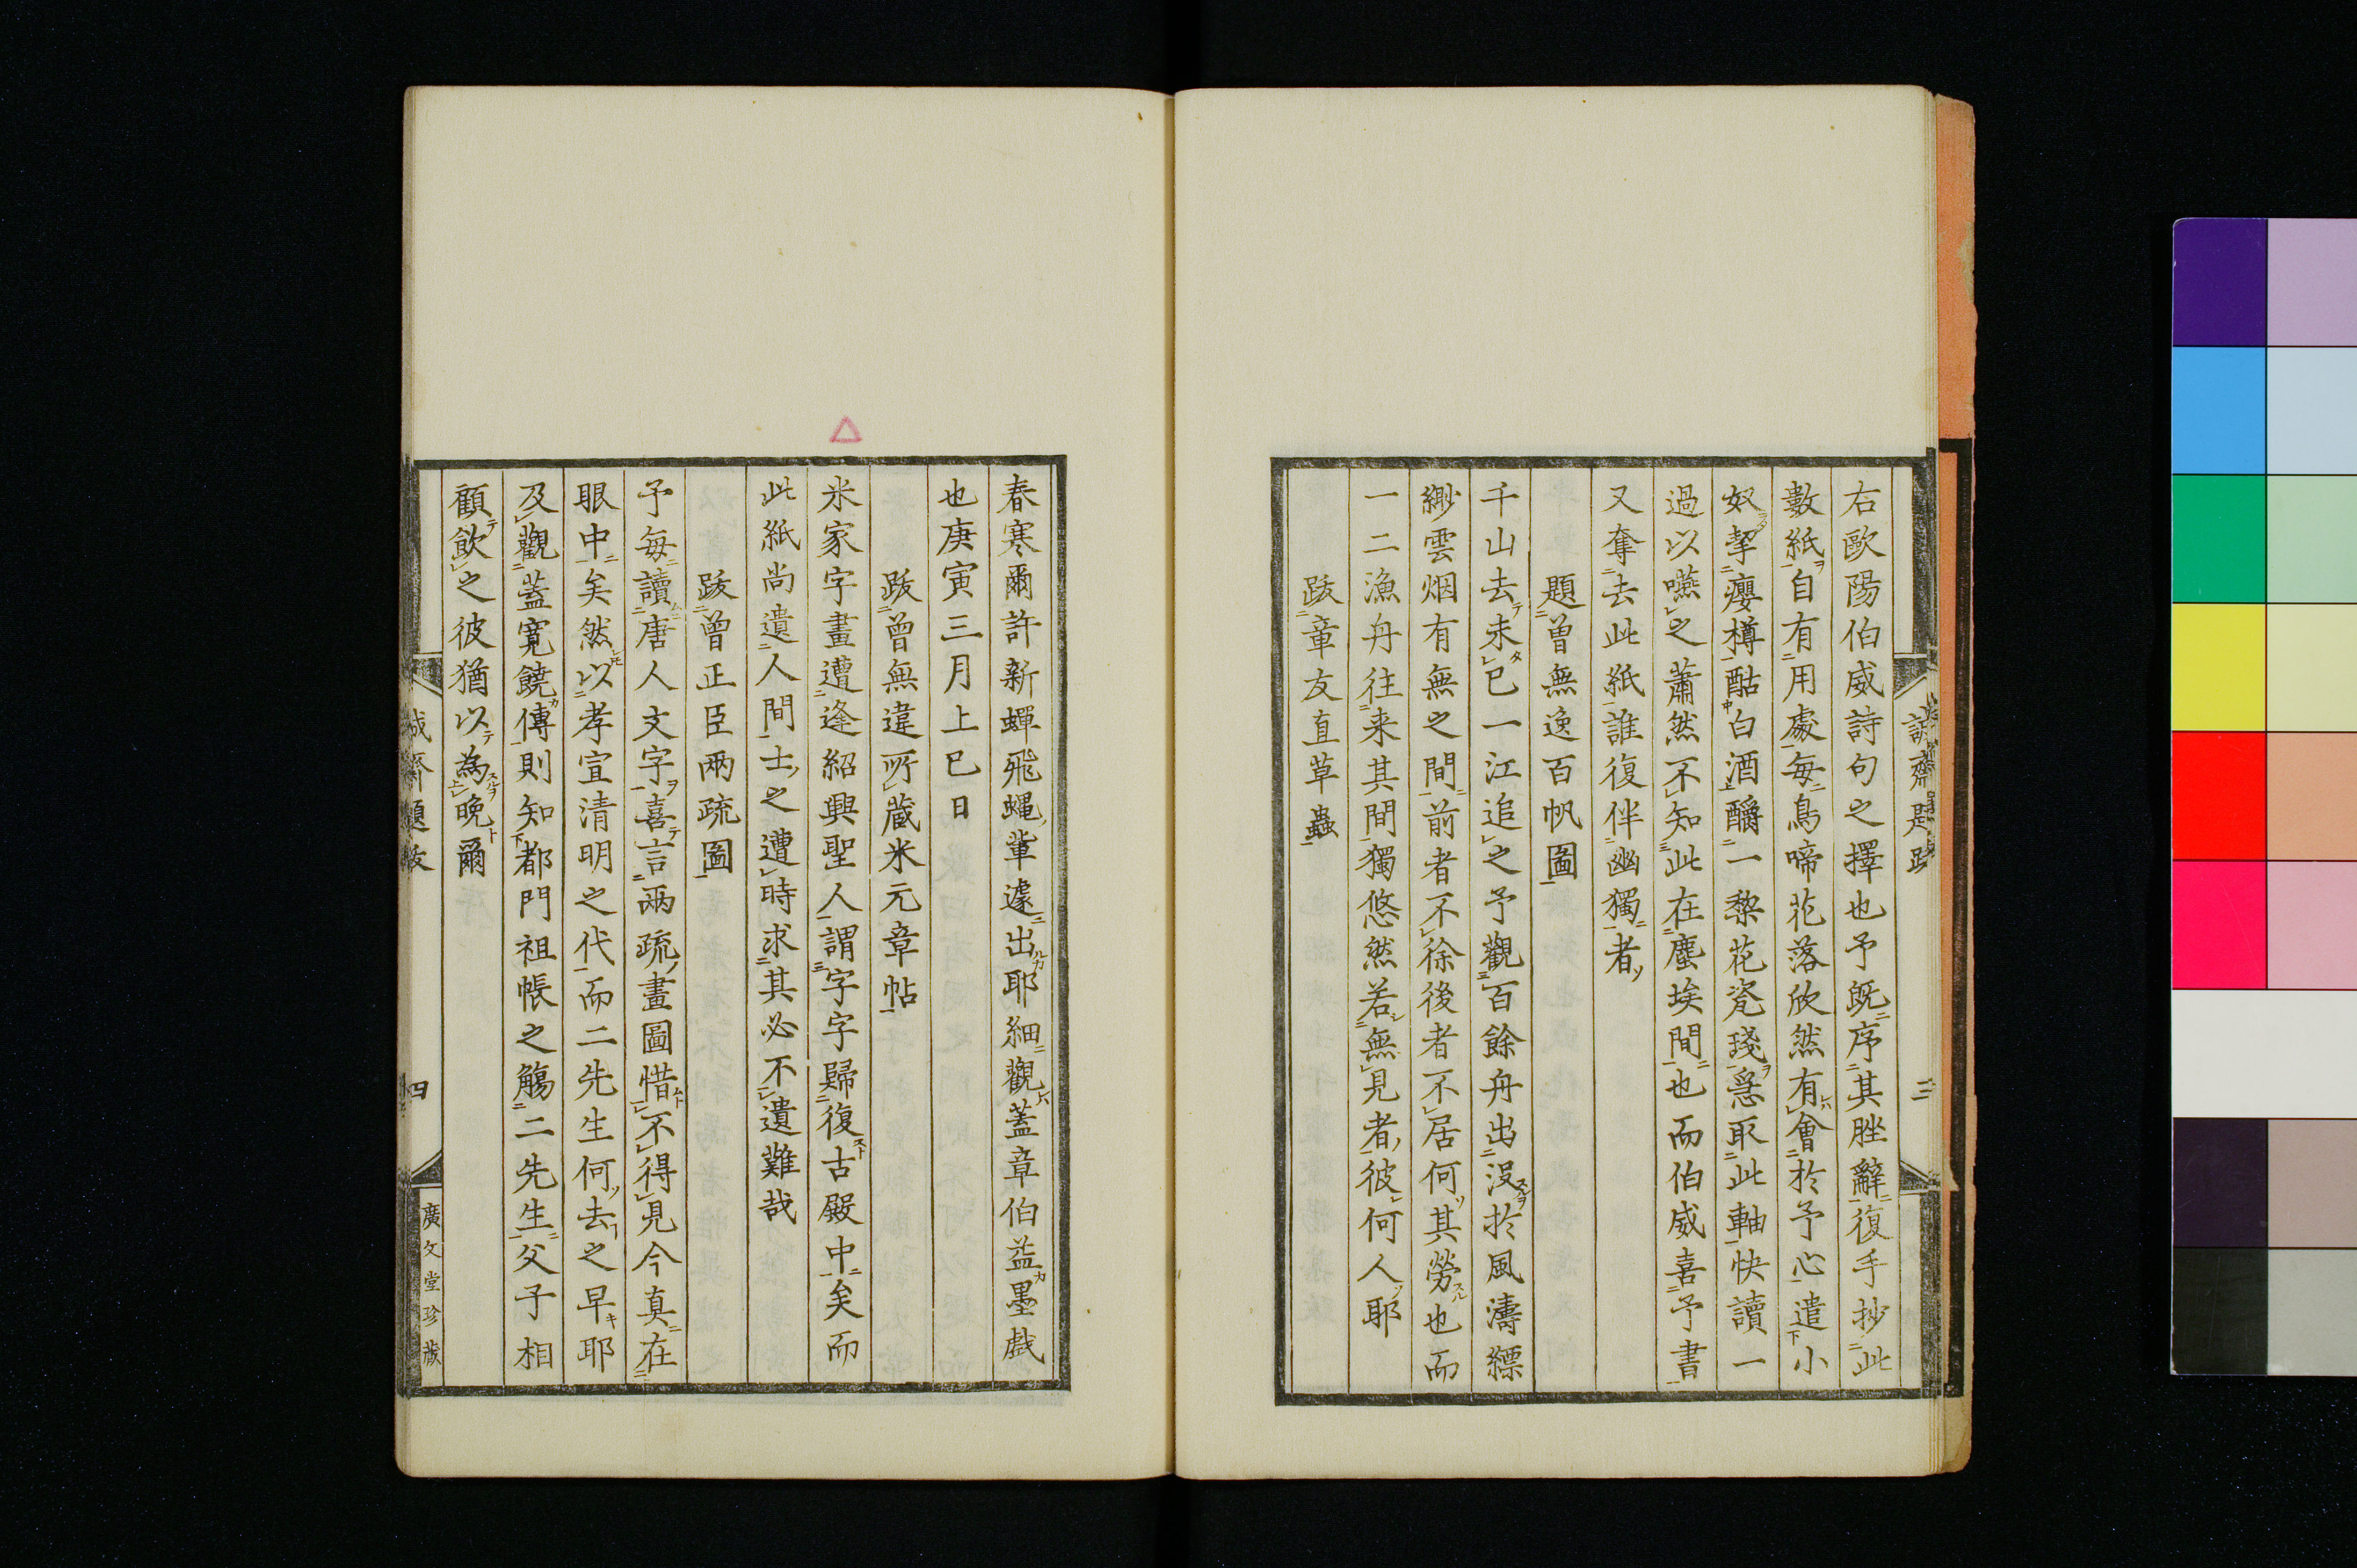 右歐陽伯威詩句之擇也予既序其脞辭復手抄此
數紙自有用處每鳥啼花落欣然有會於予心遣小
奴挈癭樽酤白酒釂一梨花瓷琖急取此軸快讀一
過以嚥之蕭然不知此在塵埃間也而伯威喜予書
又奪去此紙誰復伴幽獨者
題曾無逸百帆圖
千山去未已一江追之予觀百餘舟出没於風濤縹
緲雲烟有無之間前者不徐後者不居何其勞也而
一二漁舟往来其間獨悠然若無見者彼何人耶
跋章友直草蟲
春寒爾許新蟬飛蝇輩遽出耶細觀蓋章伯益墨戲
也庚寅三月上巳日
跋曾無違所藏米元章帖
米家字畫遭逢紹興聖人謂字字歸復古殿中矣而
此紙尚遺人間士之遭時求其必不遺難哉
跋曾正臣兩疏圖
予每讀唐人文字喜言兩疏畫圖惜不得見今真在
眼中矣然以孝宣清明之代而二先生何去之早耶
及觀蓋寬饒傳則知都門祖帳之觴二先生父子相
顧飲之彼猶以為晩爾
誠齋題跋
四
廣文堂珍藏